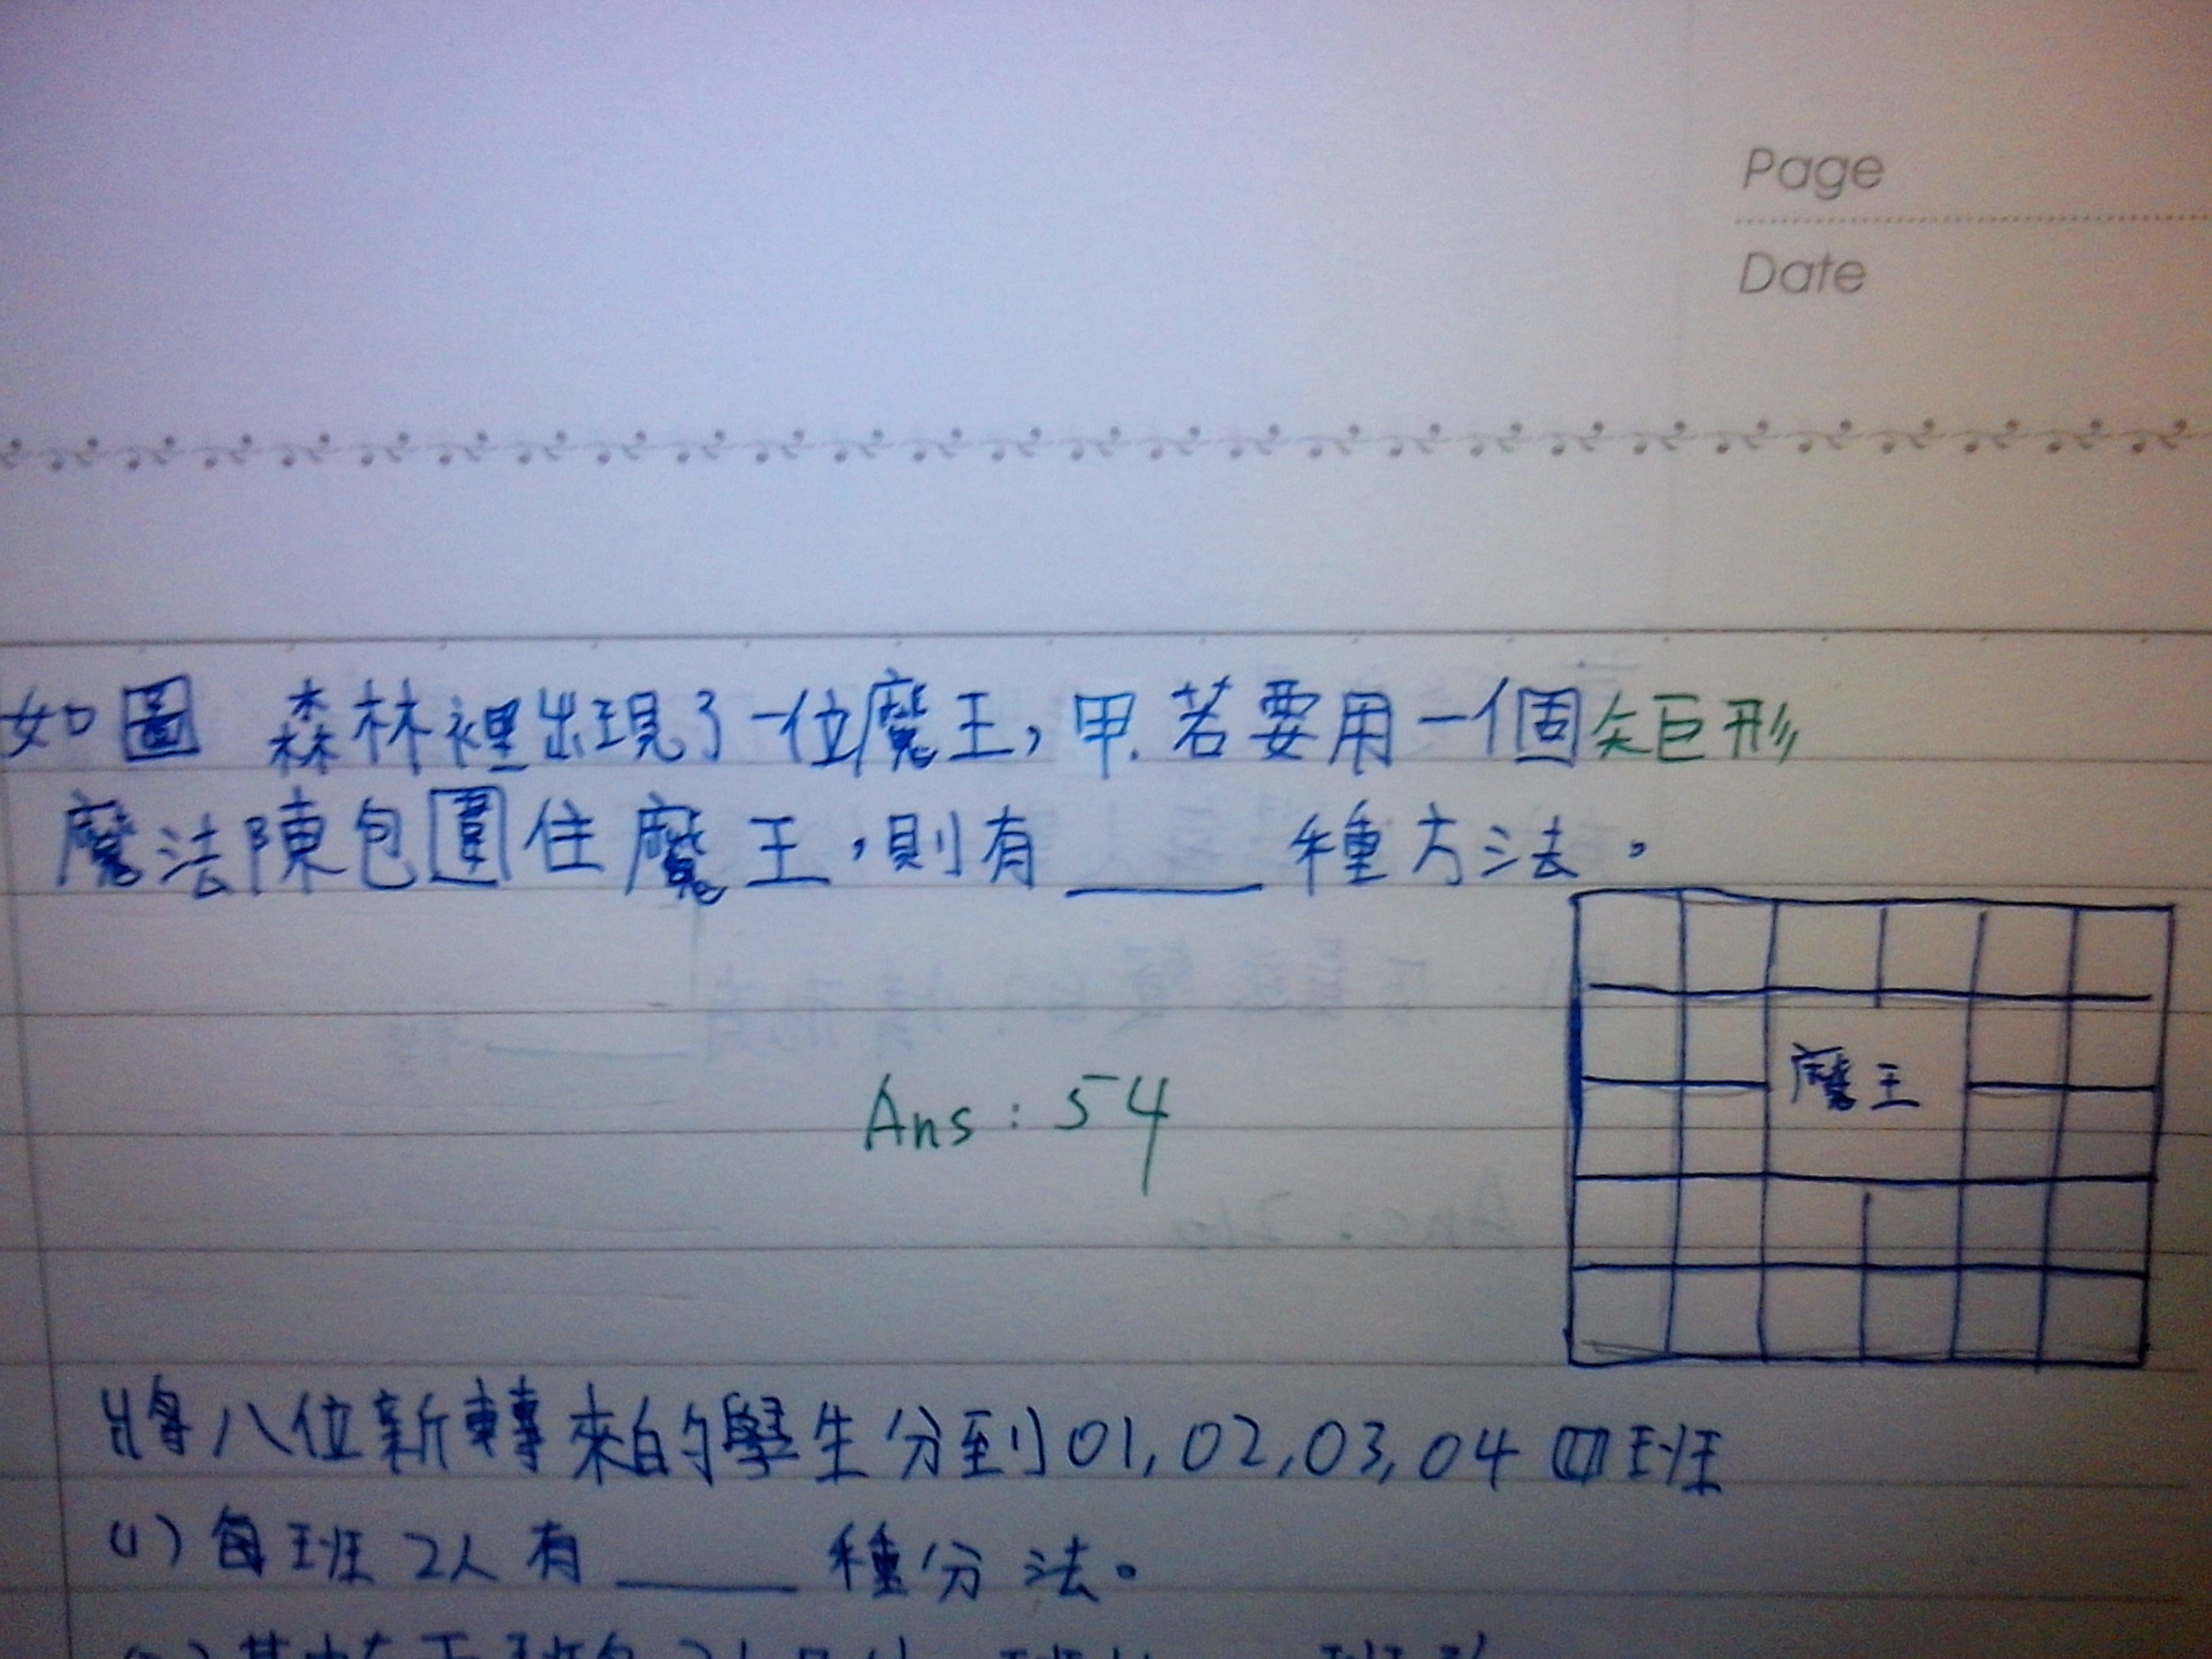 Page
Date
如圖 森林裡出現了一位魔王，甲.若要用一個矩形
魔法陳包圍住魔王，則有____種方法。
魔王
Ans：54
將八位新轉來的學生分到01,02,03,04四班
(1)每班2人有____種分法。